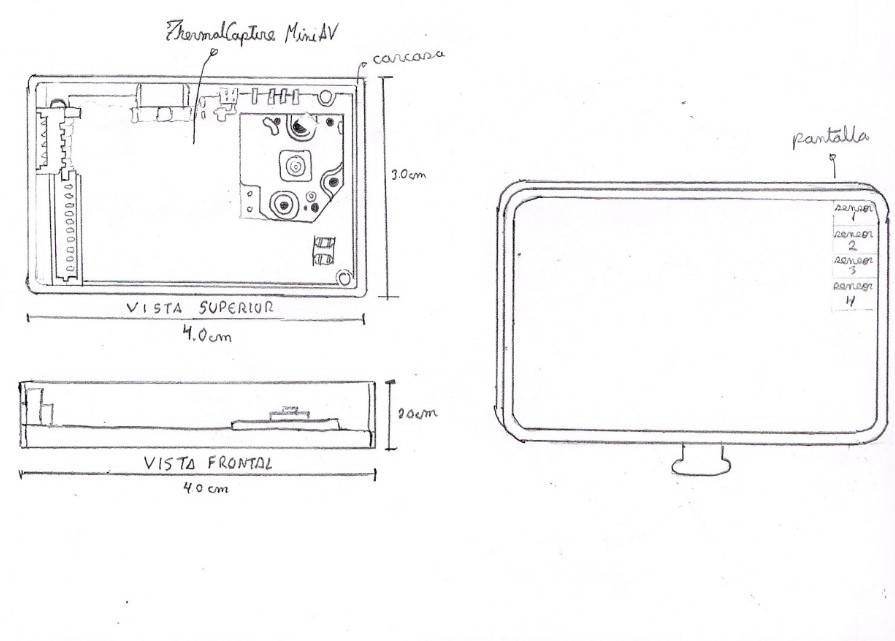 ThermalCapture MiniAV
carcasa
3.0cm
VISTA SUPERIOR
4.0cm
2.0cm
VISTA FRONTAL
4.0cm
pantalla
sensor
1
sensor
2
sensor
3
sensor
4